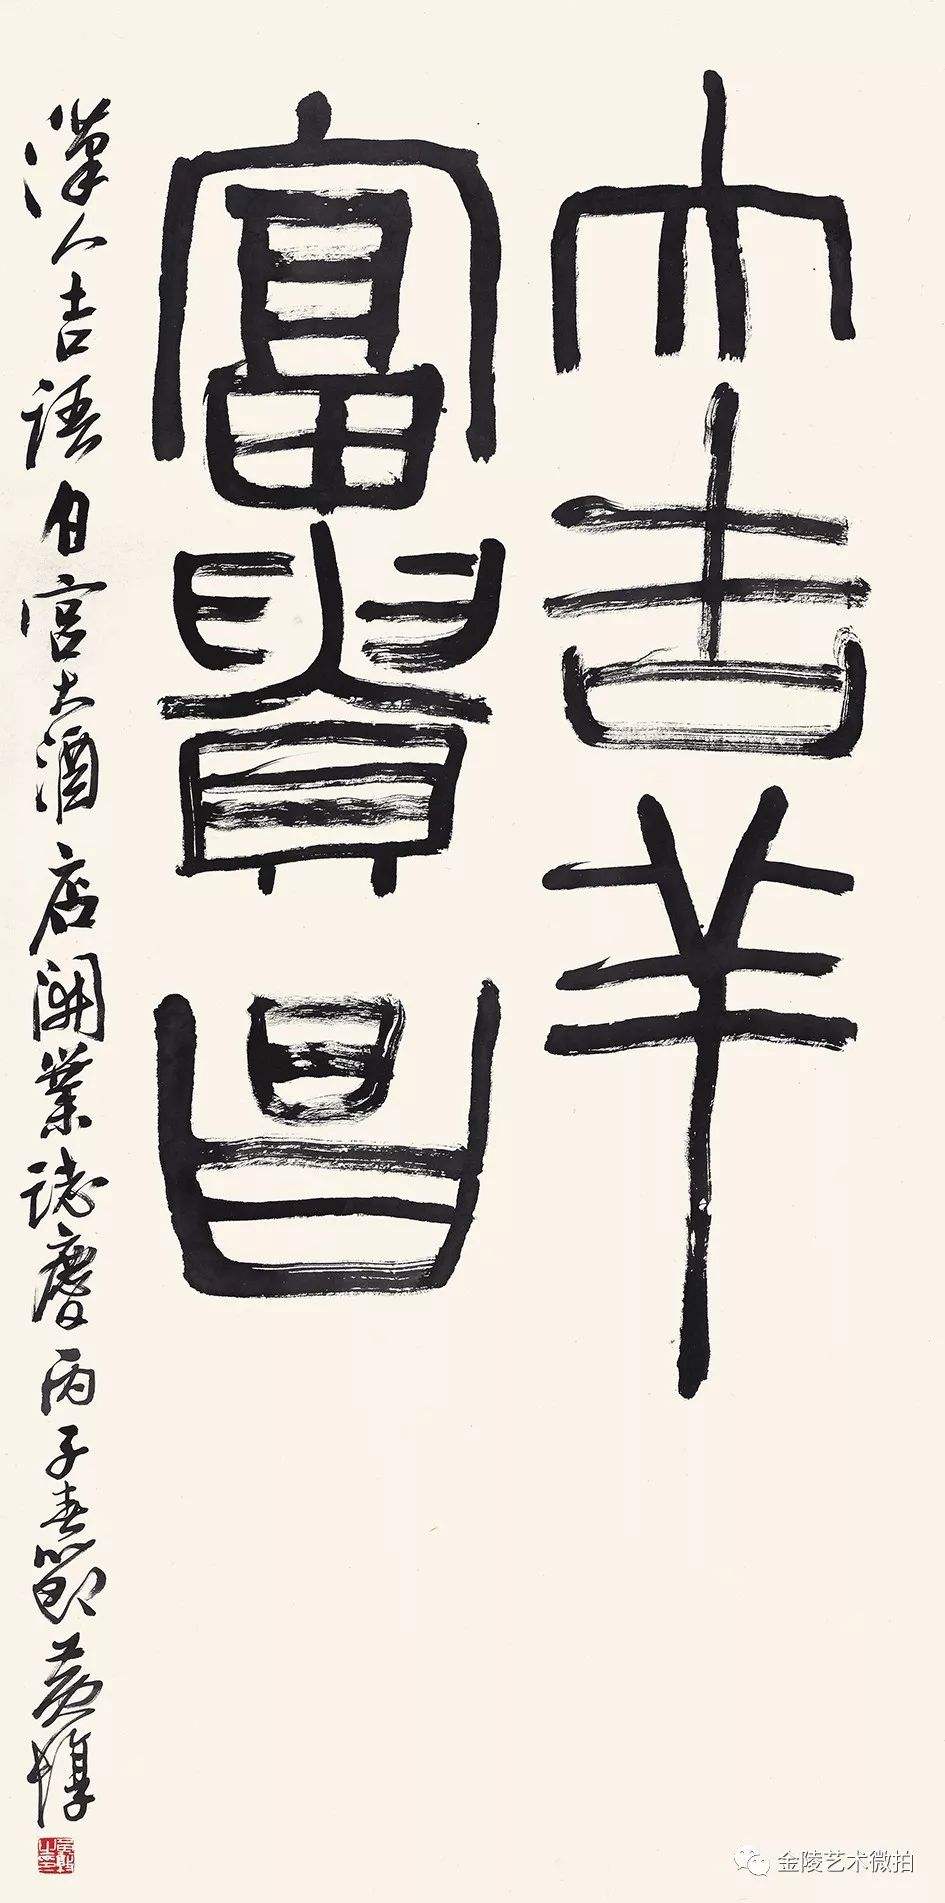 大吉羊
富貴昌
漢人吉語白宮大酒店開業誌慶丙子春節黄惇
金陵艺术微拍